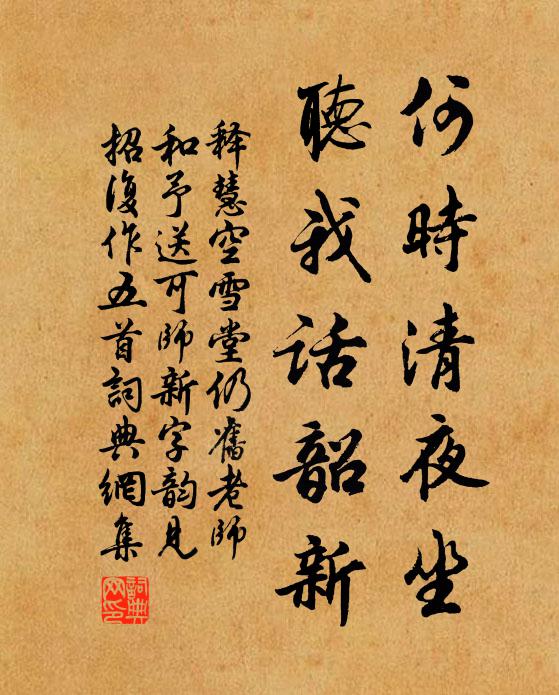 何時清夜坐
聽我話韶新
释慧空雪堂仍舊老師
和予送可師新字韵見
招復作五首詞典網集
詞典网印